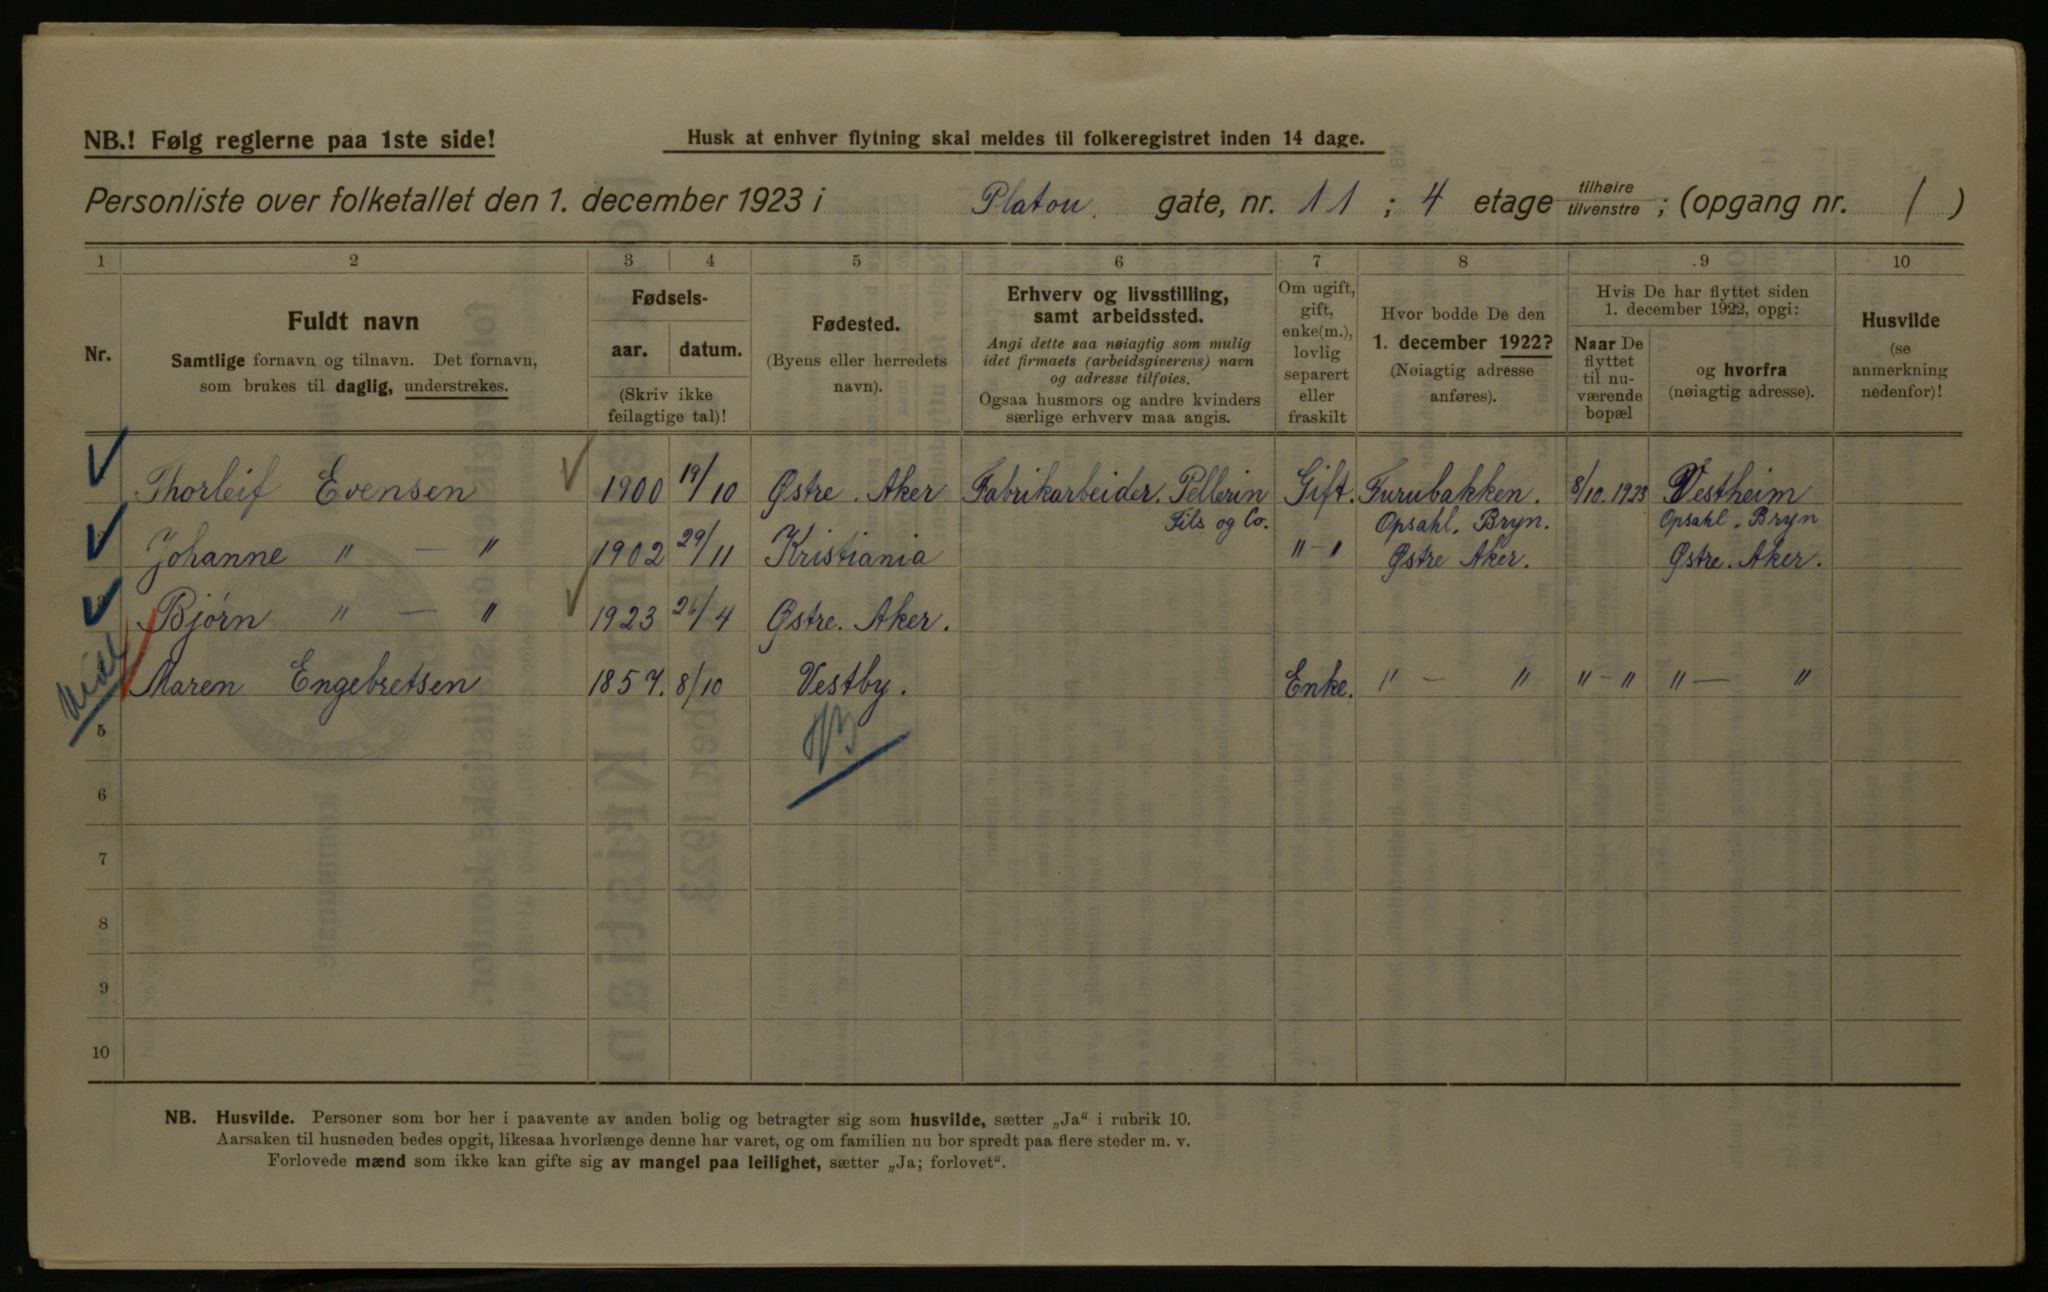 NB.! Følg reglerne paa 1ste side!
Husk at enhver flytning skal meldes til folkeregistret inden 14 dage.
Personliste over folketallet den 1. december 1923 i Platou gate, nr. 11 ; 4 etage tilhøire tilvenstre ; (opgang nr. 1 )
1 2 3 4 5 6 7 8 9 10
Nr.
Fuldt navn
Samtlige fornavn og tilnavn. Det fornavn,
som brukes til daglig, understrekes.
Fødsels-
aar. datum.
(Skriv ikke
feilagtige tal)!
Fødested.
(Byens eller herredets
navn).
Erhverv og livsstilling,
samt arbeidssted.
Angi dette saa nøiagtig som mulig
idet firmaets (arbeidsgiverens) navn
og adresse tilføies.
Ogsaa husmors og andre kvinders
særlige erhverv maa angis.
Om ugift,
gift,
enke(m.),
lovlig
separert
eller
fraskilt
Hvor bodde De den
1. december 1922?
(Nøiagtig adresse
anføres).
Hvis De har flyttet siden
1. december 1922, opgi:
Naar De
flyttet
til nu-
værende
bopæl
og hvorfra
(nøiagtig adresse).
Husvilde
(se
anmerkning
nedenfor)!
Thorleif Evensen 1900 19/10 Østre. Aker Fabrikarbeider. Pellerin Gift. Furubakken. 8/10.1923 Vestheim
Fils og Co. Opsahl. Bryn. Opsahl. Bryn
Johanne " — " 1902 29/11 Kristiania " - " Østre Aker. Østre. Aker.
Bjørn " — " 1923 26/4 Østre. Aker.
Maren Engebretsen 1857. 8/10 Vestby. Enke. " — " " — " " — "
5
6
7
8
9
10
NB. Husvilde. Personer som bor her i paavente av anden bolig og betragter sig som husvilde, sætter „Ja“ i rubrik 10.
Aarsaken til husnøden bedes opgit, likesaa hvorlænge denne har varet, og om familien nu bor spredt paa flere steder m. v.
Forlovede mænd som ikke kan gifte sig av mangel paa leilighet, sætter „Ja; forlovet“.